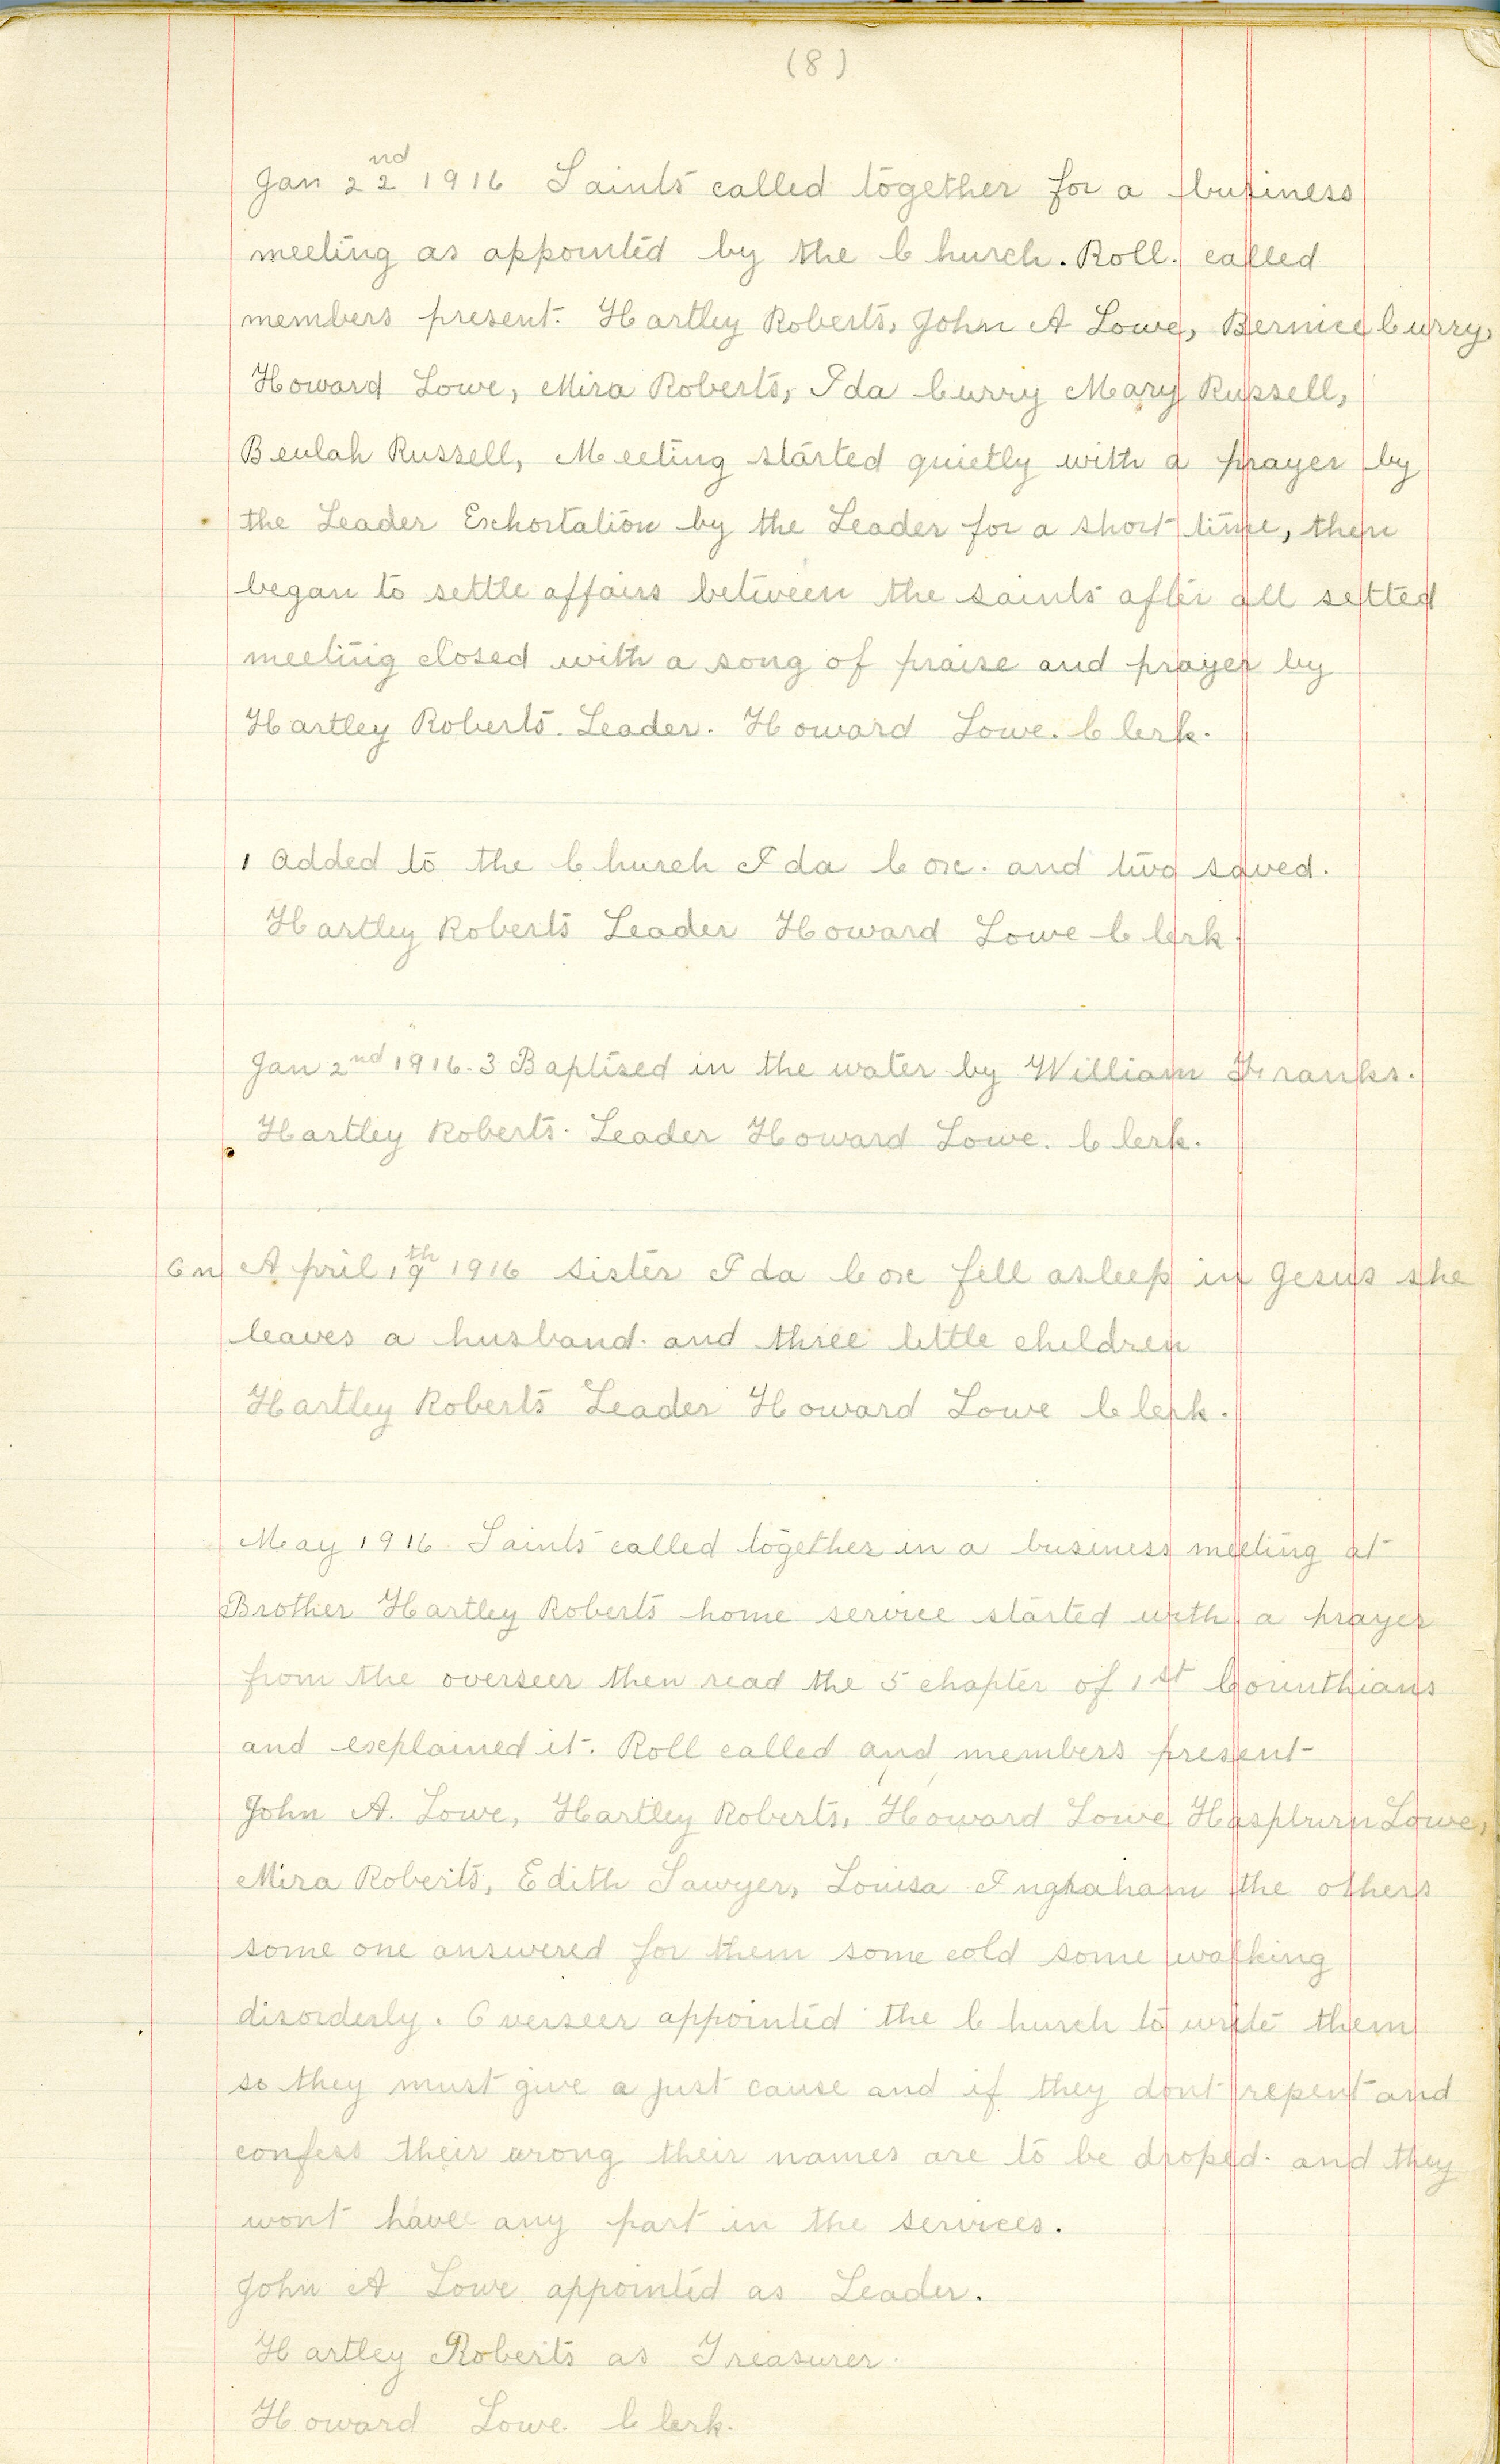 (8)
Jan 22nd 1916 Saints called together for a business
meeting as appointed by the Church. Roll. called
members present. Hartley Roberts, John A Lowe, Bernice Curry,
Howard Lowe, Mira Roberts, Ida Curry Mary Russell,
Beulah Russell, Meeting started quietly with a prayer by
the Leader Exhortation by the Leader for a short time, then
began to settle affairs between the saints after all setted
meeting closed with a song of praise and prayer by
Hartley Roberts. Leader. Howard Lowe. Clerk.
1 added to the Church Ida Cox. and two saved.
Hartley Roberts Leader Howard Lowe Clerk.
Jan 2nd 1916. 3 Baptised in the water by William Franks.
Hartley Roberts. Leader Howard Lowe. Clerk.
On April 19th 1916 sister Ida Cox fell asleep in Jesus she
leaves a husband. and three little children
Hartley Roberts Leader Howard Lowe Clerk.
May 1916 Saints called together in a business meeting at
Brother Hartley Roberts home service started with a prayer
from the overseer then read the 5 chapter of 1st Corinthians
and explained it. Roll called and members present
John A. Lowe, Hartley Roberts, Howard Lowe Haspburn Lowe,
Mira Roberts, Edith Sawyer, Louisa Ingraham the others
some one answered for them some cold some walking
disorderly. Overseer appointed the Church to write them
so they must give a just cause and if they dont repent and
confess their wrong their names are to be droped. and they
wont have any part in the services.
John A Lowe appointed as Leader.
Hartley Roberts as Treasurer.
Howard Lowe Clerk.